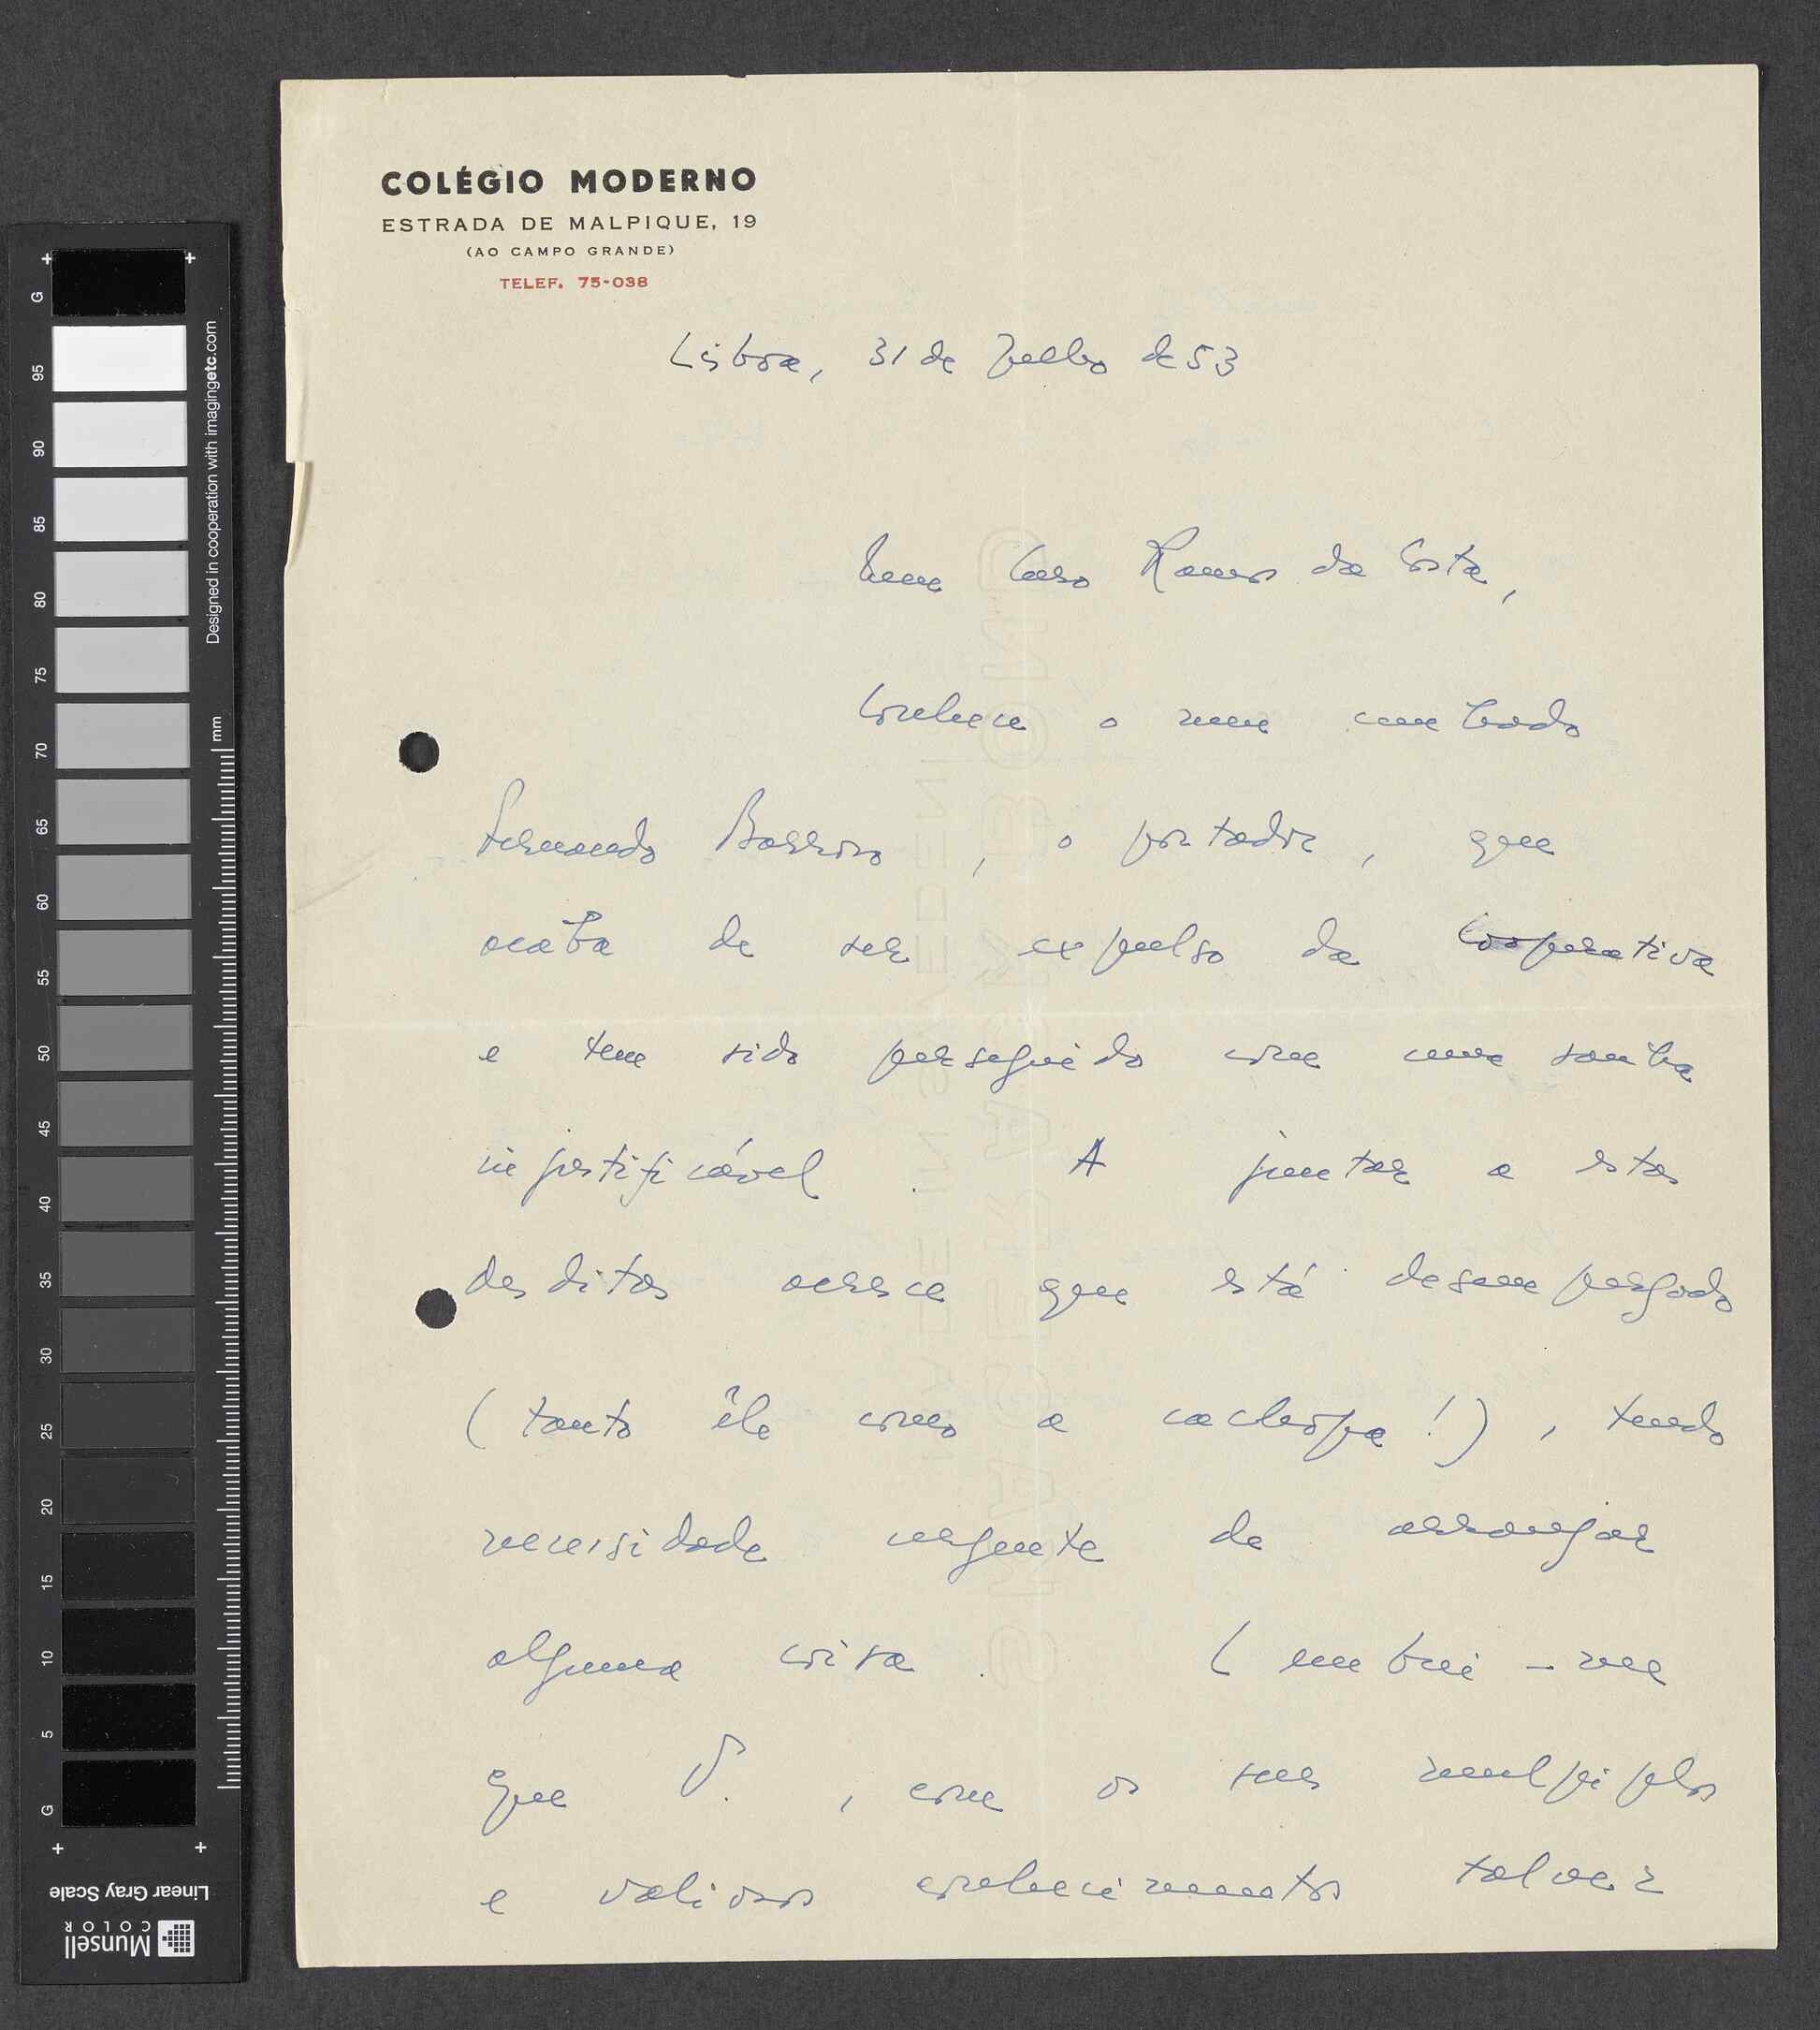 COLÉGIO MODERNO
ESTRADA DE MALPIQUE, 19
(AO CAMPO GRANDE)
TELEF. 75-038
Lisboa, 31 de Julho de 53
Meu Caro Ramos da Costa,
Conhece o meu cunhado
Fernando Barroso, o portador, que
acaba de ser expulso da Cooperativa
e tem sido perseguido com uma sanha
injustificável. A juntar a estas
desditas acresce que está desempregado
(tanto êle como a cachopa!), tendo
necessidade urgente de arranjar
alguma coisa. Lembrei-me
que V., com os seus
e valiosos conhecimentos talvez
G
95
90
85
80
75
70
65
60
55
50
45
40
35
30
25
20
15
10
5
G
mm
Designed in cooperation with imagingetc.com
Linear Gray Scale
Munsell
COLOR